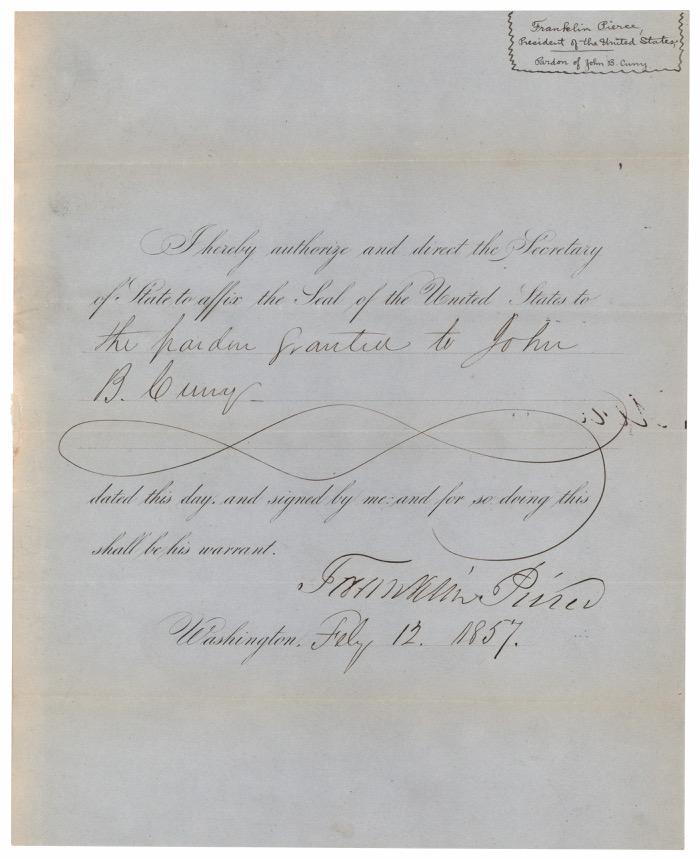 Franklin Pierce,
President of the United States,
Pardon of John B. Cuny
I hereby authorize and direct the Secretary
of State to affix the Seal of the United States to
the pardon granted to John
B. Cuny
dated this day, and signed by me: and for so doing this
shall be his warrant.
Franklin Pierce
Washington, Feby 12. 1857.